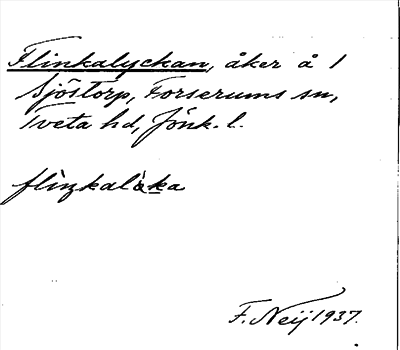 Flinkalyckan, åker å 1
Sjöstorp, Forserums sn,
Tveta hd, Jönk. l.
F. Neij 1937.